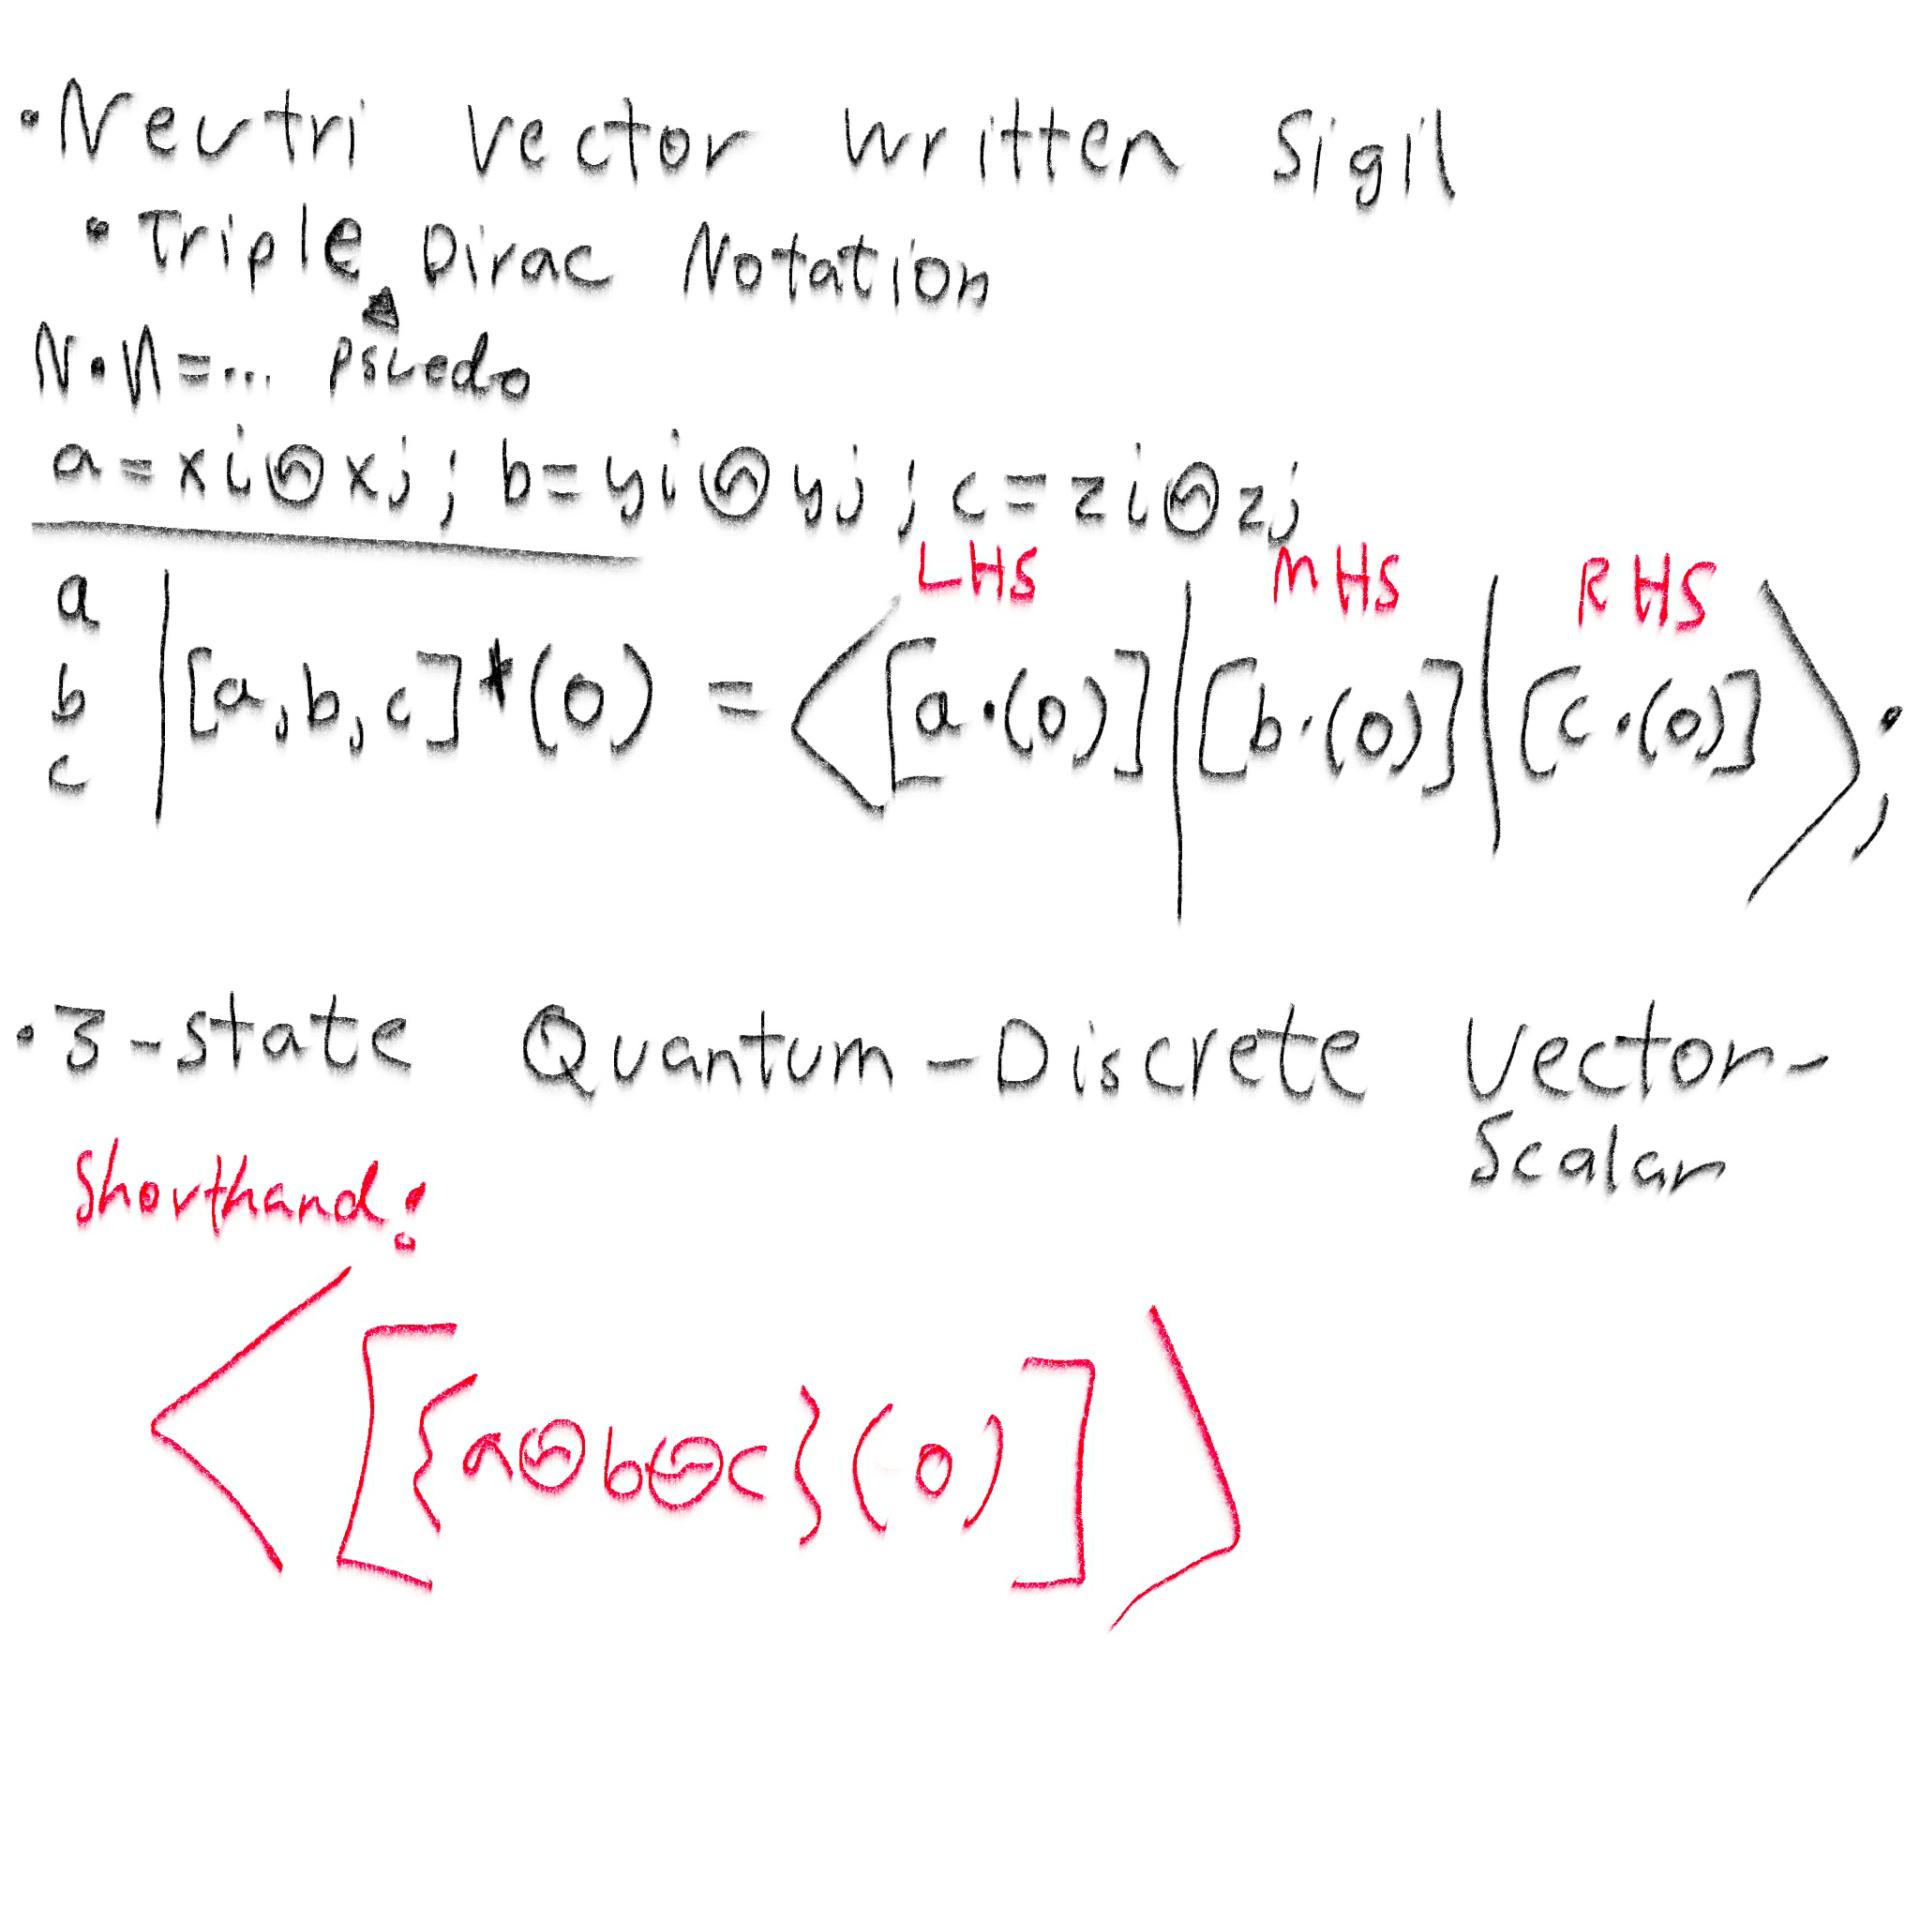 •Neutri vector written Sigil
•Triple Dirac Notation
N•N=... Psuedo
a=xi㋡xj; b=yi㋡yj; c=zi㋡zj
LHS MHS RHS
a
b
c
|[a,b,c]*(0) = ⟨[a•(0)]|[b•(0)]|[c•(0)]⟩;
•3-state Quantum-Discrete Vector-
Scalar
Shorthand:
⟨[{a㋡b㋡c}(0)]⟩